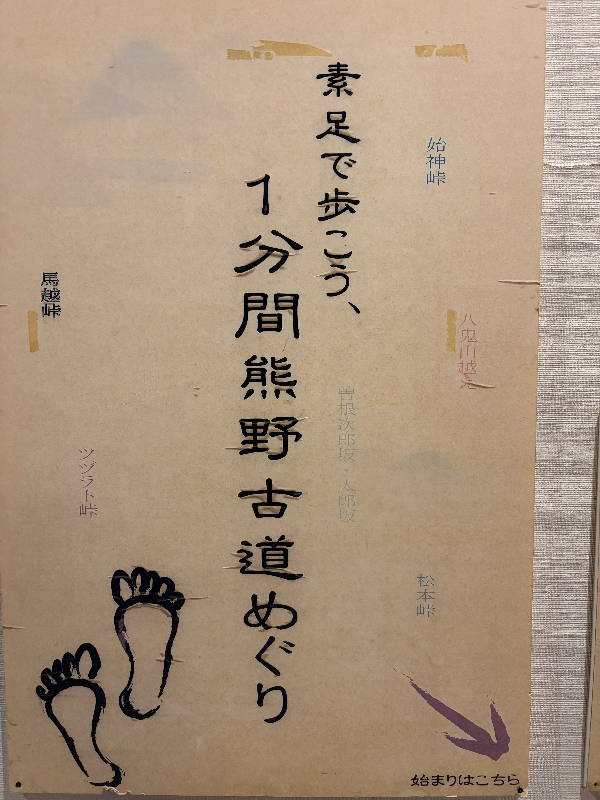 素足で歩こう、
1分間熊野古道めぐり
始神峠
八鬼山越え
曽根次郎坂・太郎坂
松本峠
馬越峠
ツヅラト峠
始まりはこちら